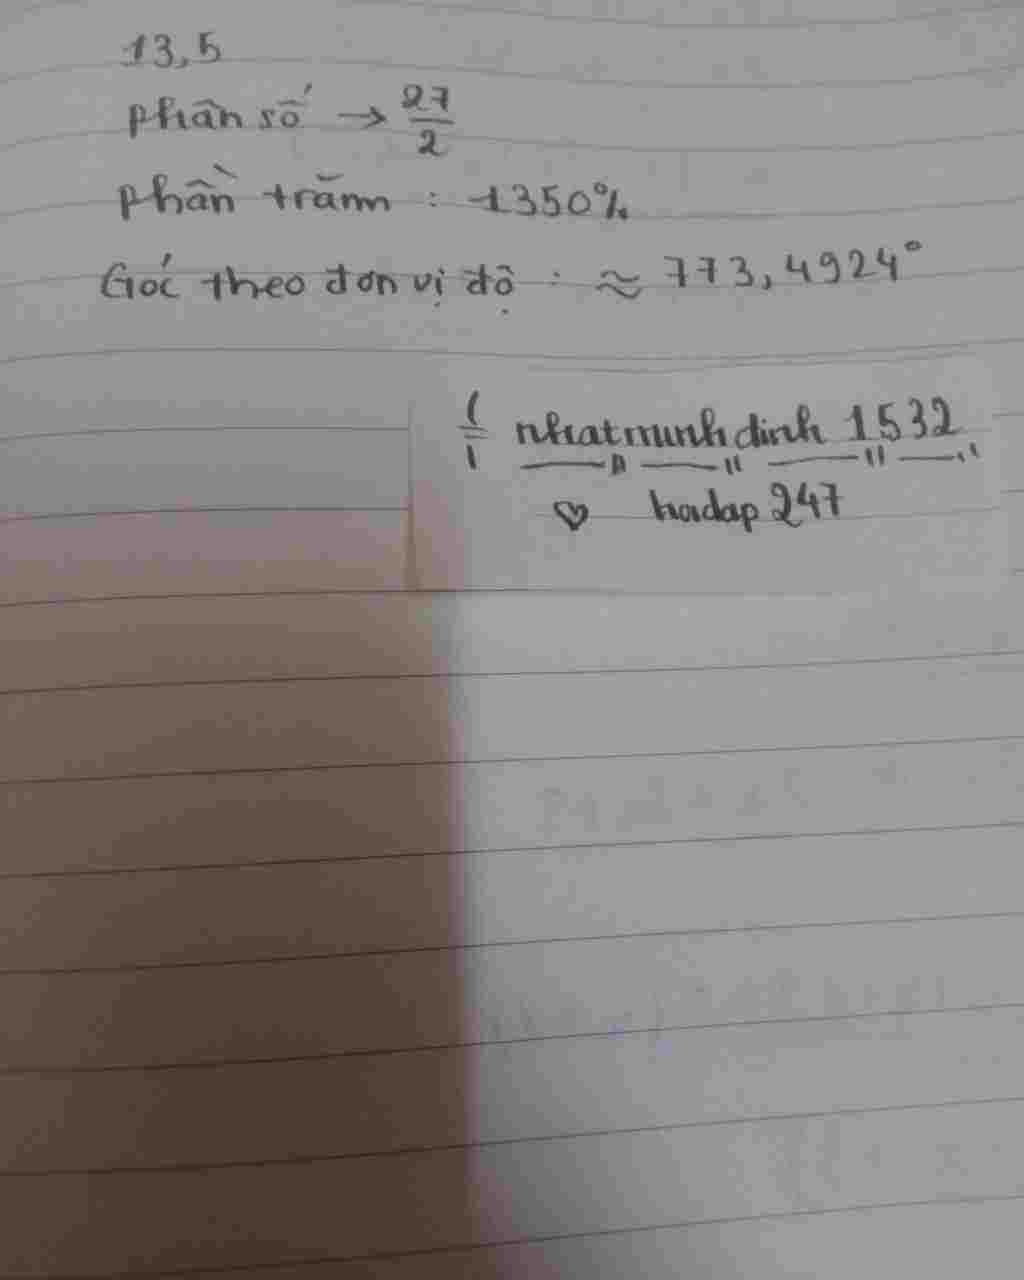 13,5
phân số → 27/2
phần trăm : 1350%
Góc theo đơn vị độ : ≈ 773,4924°
nhatminhdinh 1532
♡ hoidap 247